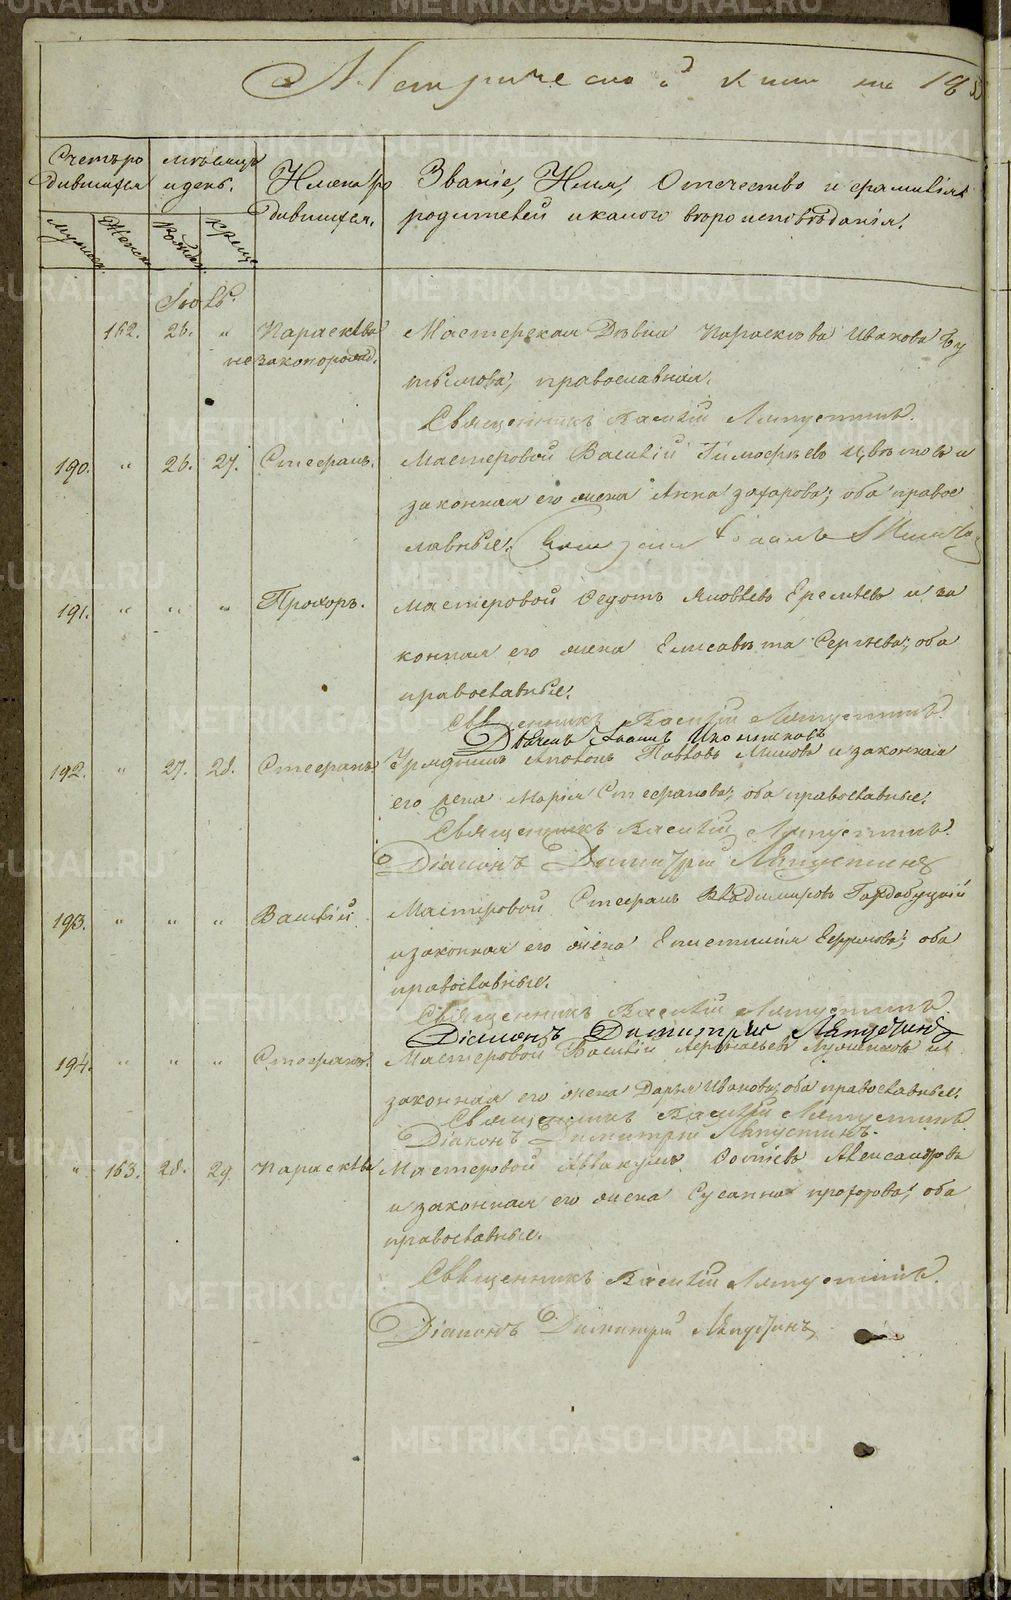 Метрической книги на 18
Счетъ ро
дившихся
мѣсяцъ
и день.
Имена ро
дившихся.
Званіе, Имя, Отечество и фамилія
родителей и какого вѣроисповѣданія.
Мужеск. Женск. Рожден. Крещ.
Іюль.
152. 26. " Параскева Мастерская Дѣвка Параскева Иванова Бу
незаконорожд.
тымова, православная.
Священникъ Василій Ляпустинъ.
190. " 26. 27. Стефанъ. Мастеровой Василій Тимофѣевъ Цвѣтовъ и
законная его жена Анна Захарова; оба правос
лавные.
191. " " " Прохоръ. Мастеровой Федотъ Яковлевъ Еремѣевъ и за
конная его жена Елисавета Сергѣева; оба
православные.
Священникъ Василій Ляпустинъ.
Дьячекъ Іоаннъ Иконниковъ
192. " 27. 28. Стефанъ Урядникъ Антонъ Павловъ и законная
его жена Марія Стефанова; оба православные.
Священникъ Василій Ляпустинъ.
Діаконъ Димитрій Ляпустинъ
193. " " " Василій. Мастеровой Стефанъ Владимировъ
и законная его жена Епистимія Ефимова; оба
православные.
Священникъ Василій Ляпустинъ
Діаконъ Димитрій Ляпустинъ
194. " " " Стефанъ. Мастеровой Василій и
законная его жена Дарья Иванова; оба православные.
Священникъ Василій Ляпустинъ
Діаконъ Димитрій Ляпустинъ.
" 153. 28. 29. Параскева Мастеровой Аввакумъ Александровъ
и законная его жена Сусанна Прохорова; оба
православные.
Священникъ Василій Ляпустинъ.
Діаконъ Димитрій Ляпустинъ
METRIKI.GASO-URAL.RU